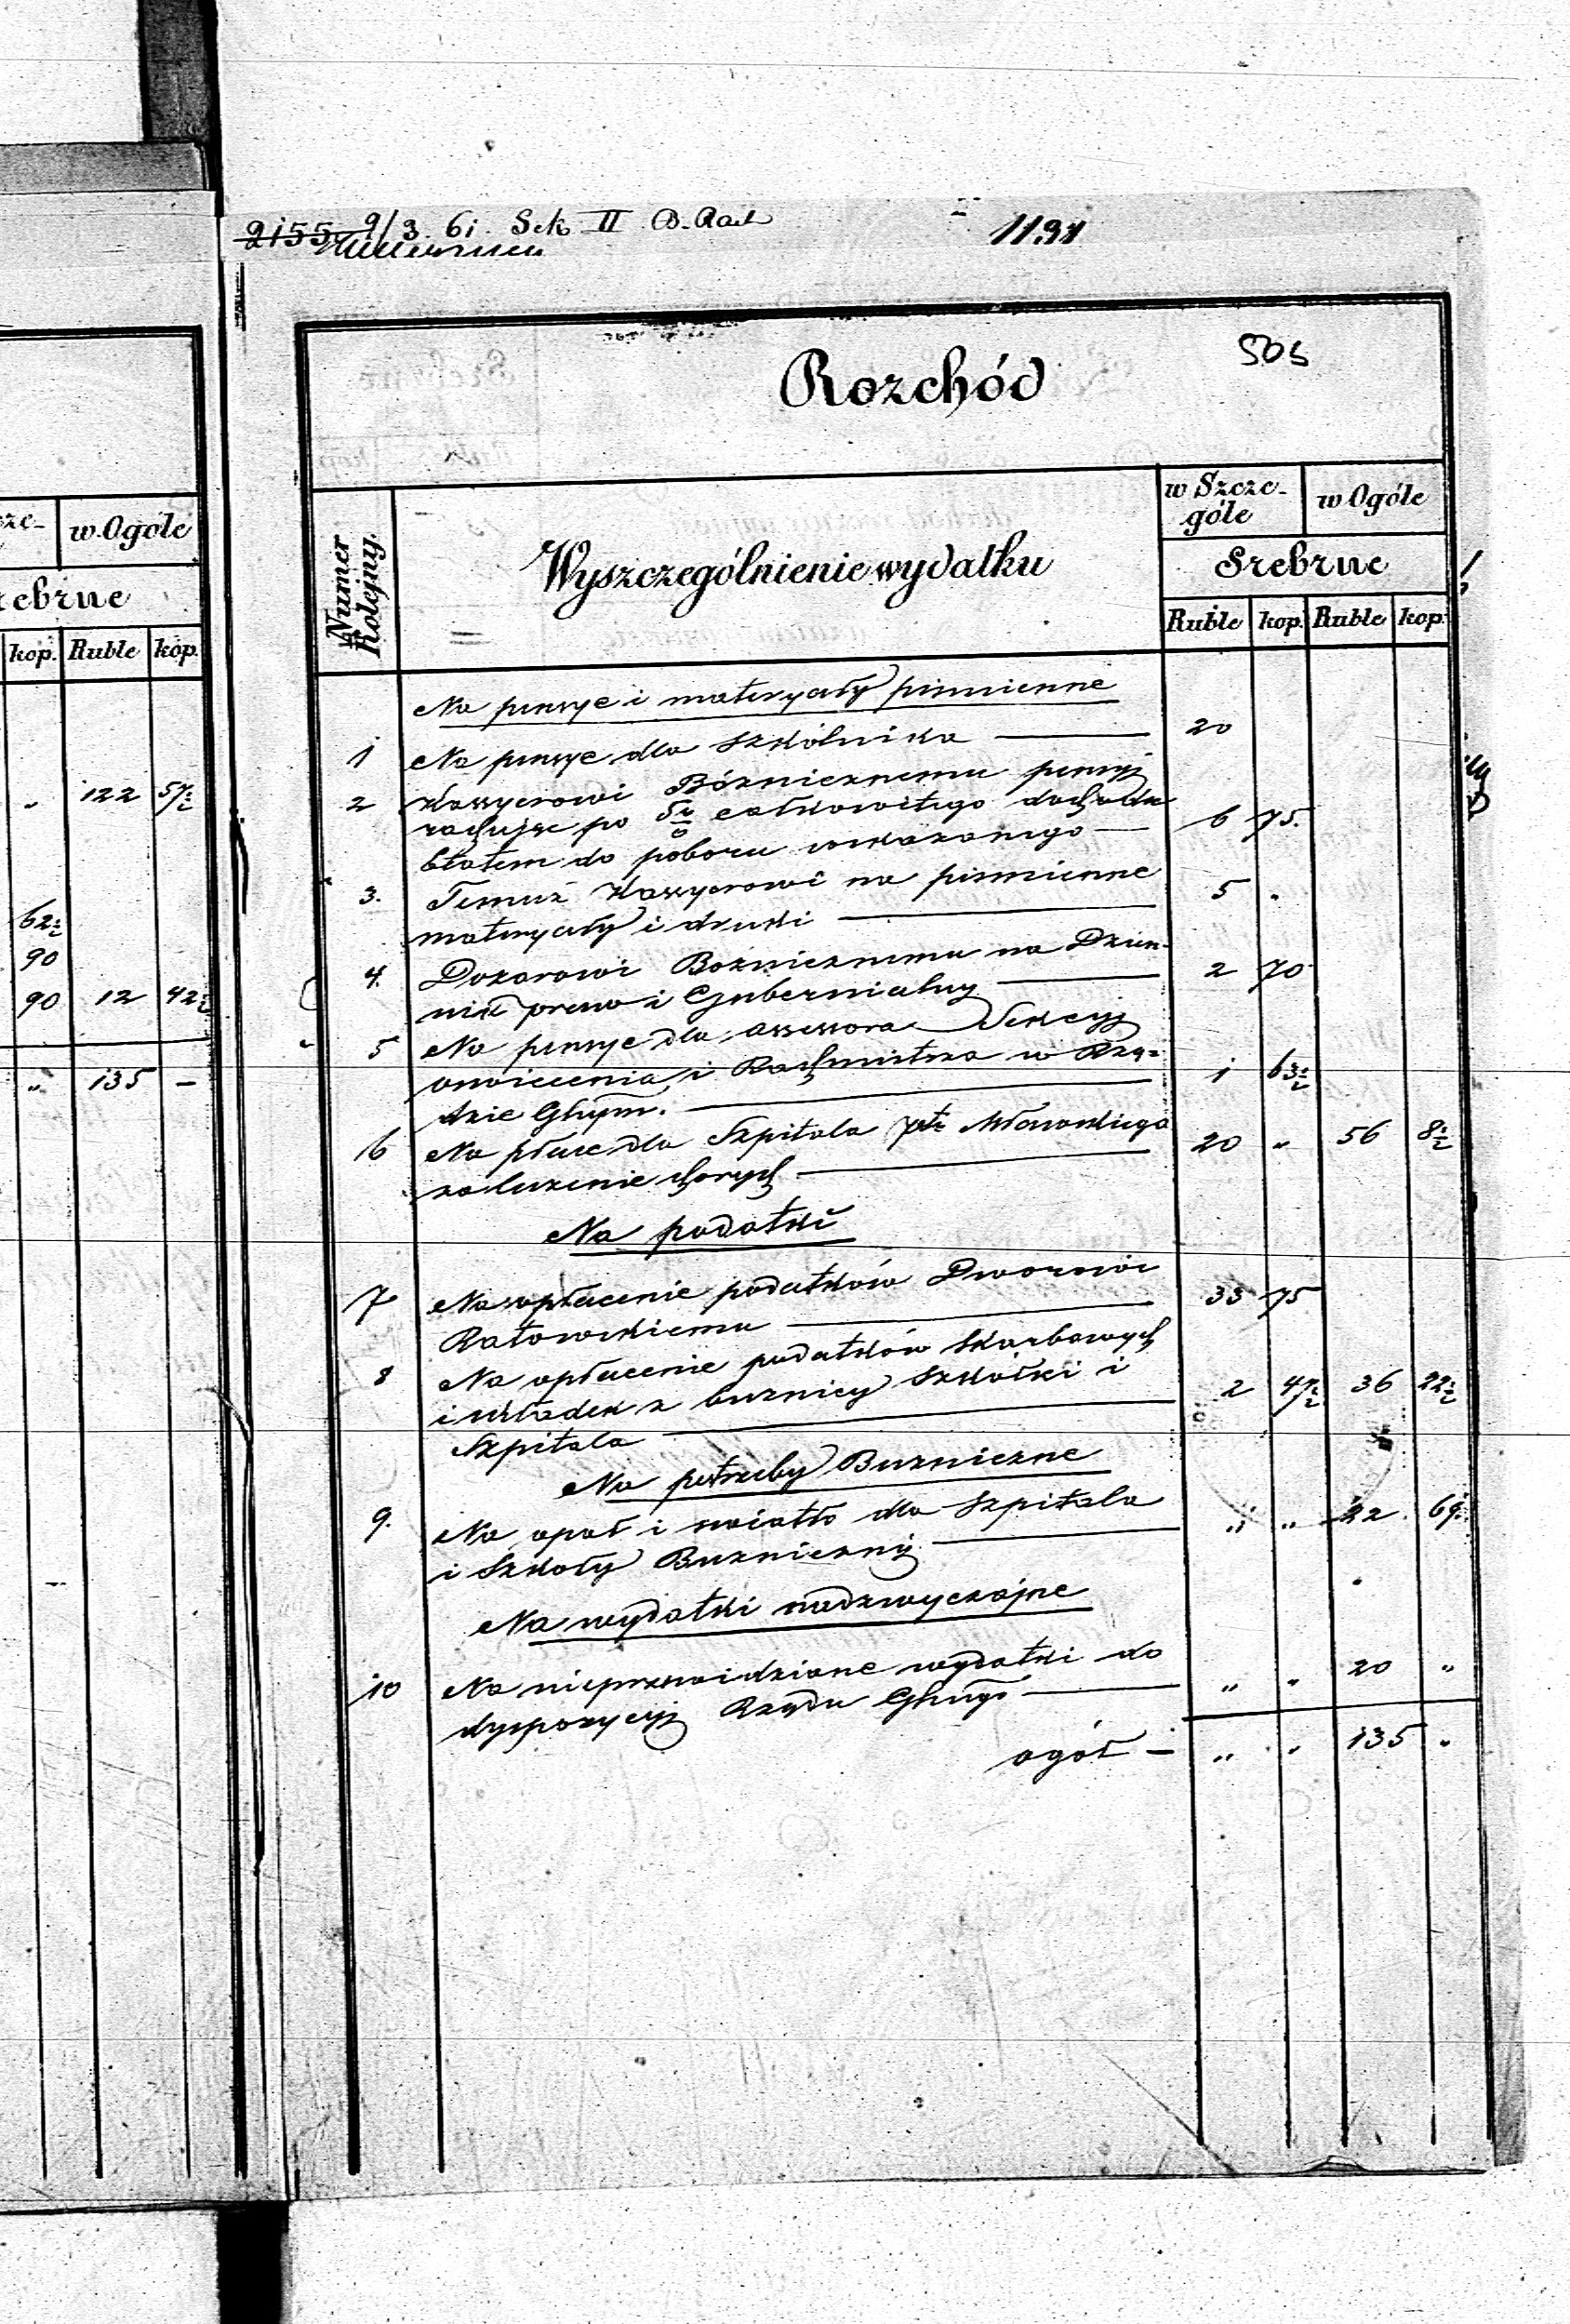 zcze- w Ogóle
rebrne
kop. Ruble kop.
" 122 57½
62½
90
90 12 42½
" 135 —
2155 9/3 61. Sek II B. Rad
1191
505
Rozchód
Numer Kolejny.
Wyszczególnienie wydatku
w Szcze-
góle
w Ogóle
Srebrne
Ruble kop. Ruble kop.
Na pensye i materyały piśmienne
1 Na pensye dla szkólnika — 20
2 Kassyerowi Bóżnicznemu pensyi
rachując po 5% całkowitego dochodu
Etatem do poboru wskazanego — 6 75.
3. Temuż Kassyerowi na piśmienne 5 "
materyały i druki —
4. Dozorowi Boznicznemu na Dzien- 2 70
nik praw i Gubernialny —
5 Na pensye dla assessora Sekcyi
oswiecenia i Rachmistrza w Rzą- 1 63½
dzie Gbnym. —
6 Na płace dla Szpitala Mławskiego 20 " 56 8½
za leczenie chorych —
Na podatki
7 Na opłacenie podatków Dworowi 33 75
Ratowskiemu —
8 Na opłacenie podatków skarbowych
i składek z buznicy szkółki i 2 47½ 36 22½
Szpitala —
Na potrzeby Buzniczne
9. Na opał i swiatło dla Szpitala " " 22 69
i Szkoły Buznicznij —
Na wydatki nadzwyczajne
10 Na nieprzewidziane wydatki do " " 20 "
dyspozycyi Rządu Gbnego —
ogół — " " 135 "